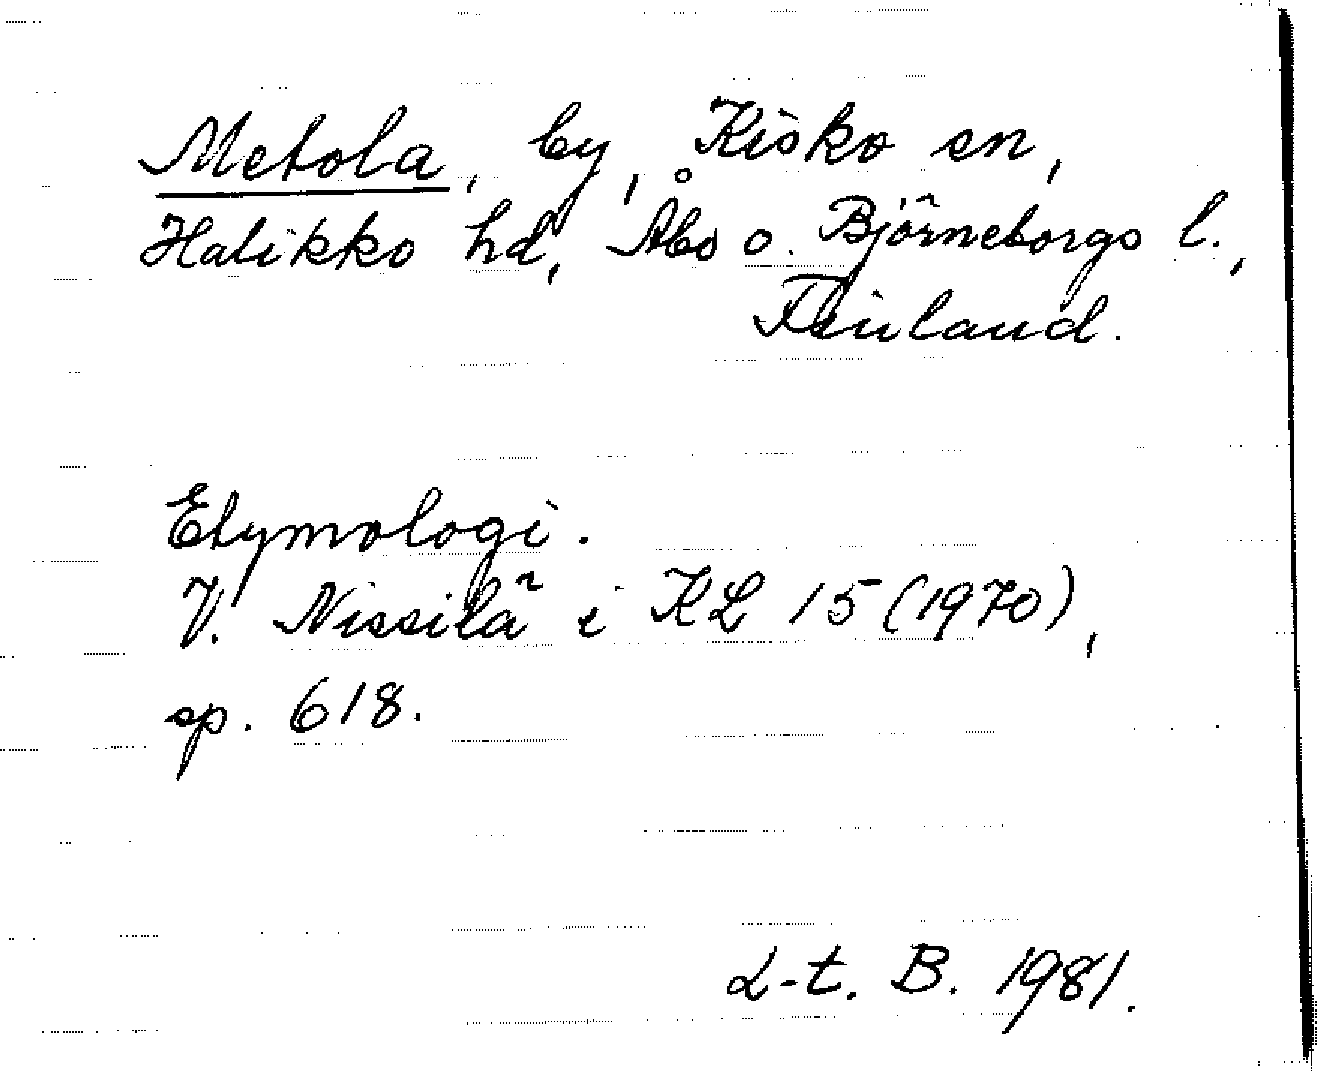 Metola, by, Kisko sn,
Halikko hd, Åbo o. Björneborgs l.,
Finland.
Etymologi.
V. Nissilä i KL 15 (1970),
sp. 618.
L-t. B. 1981.